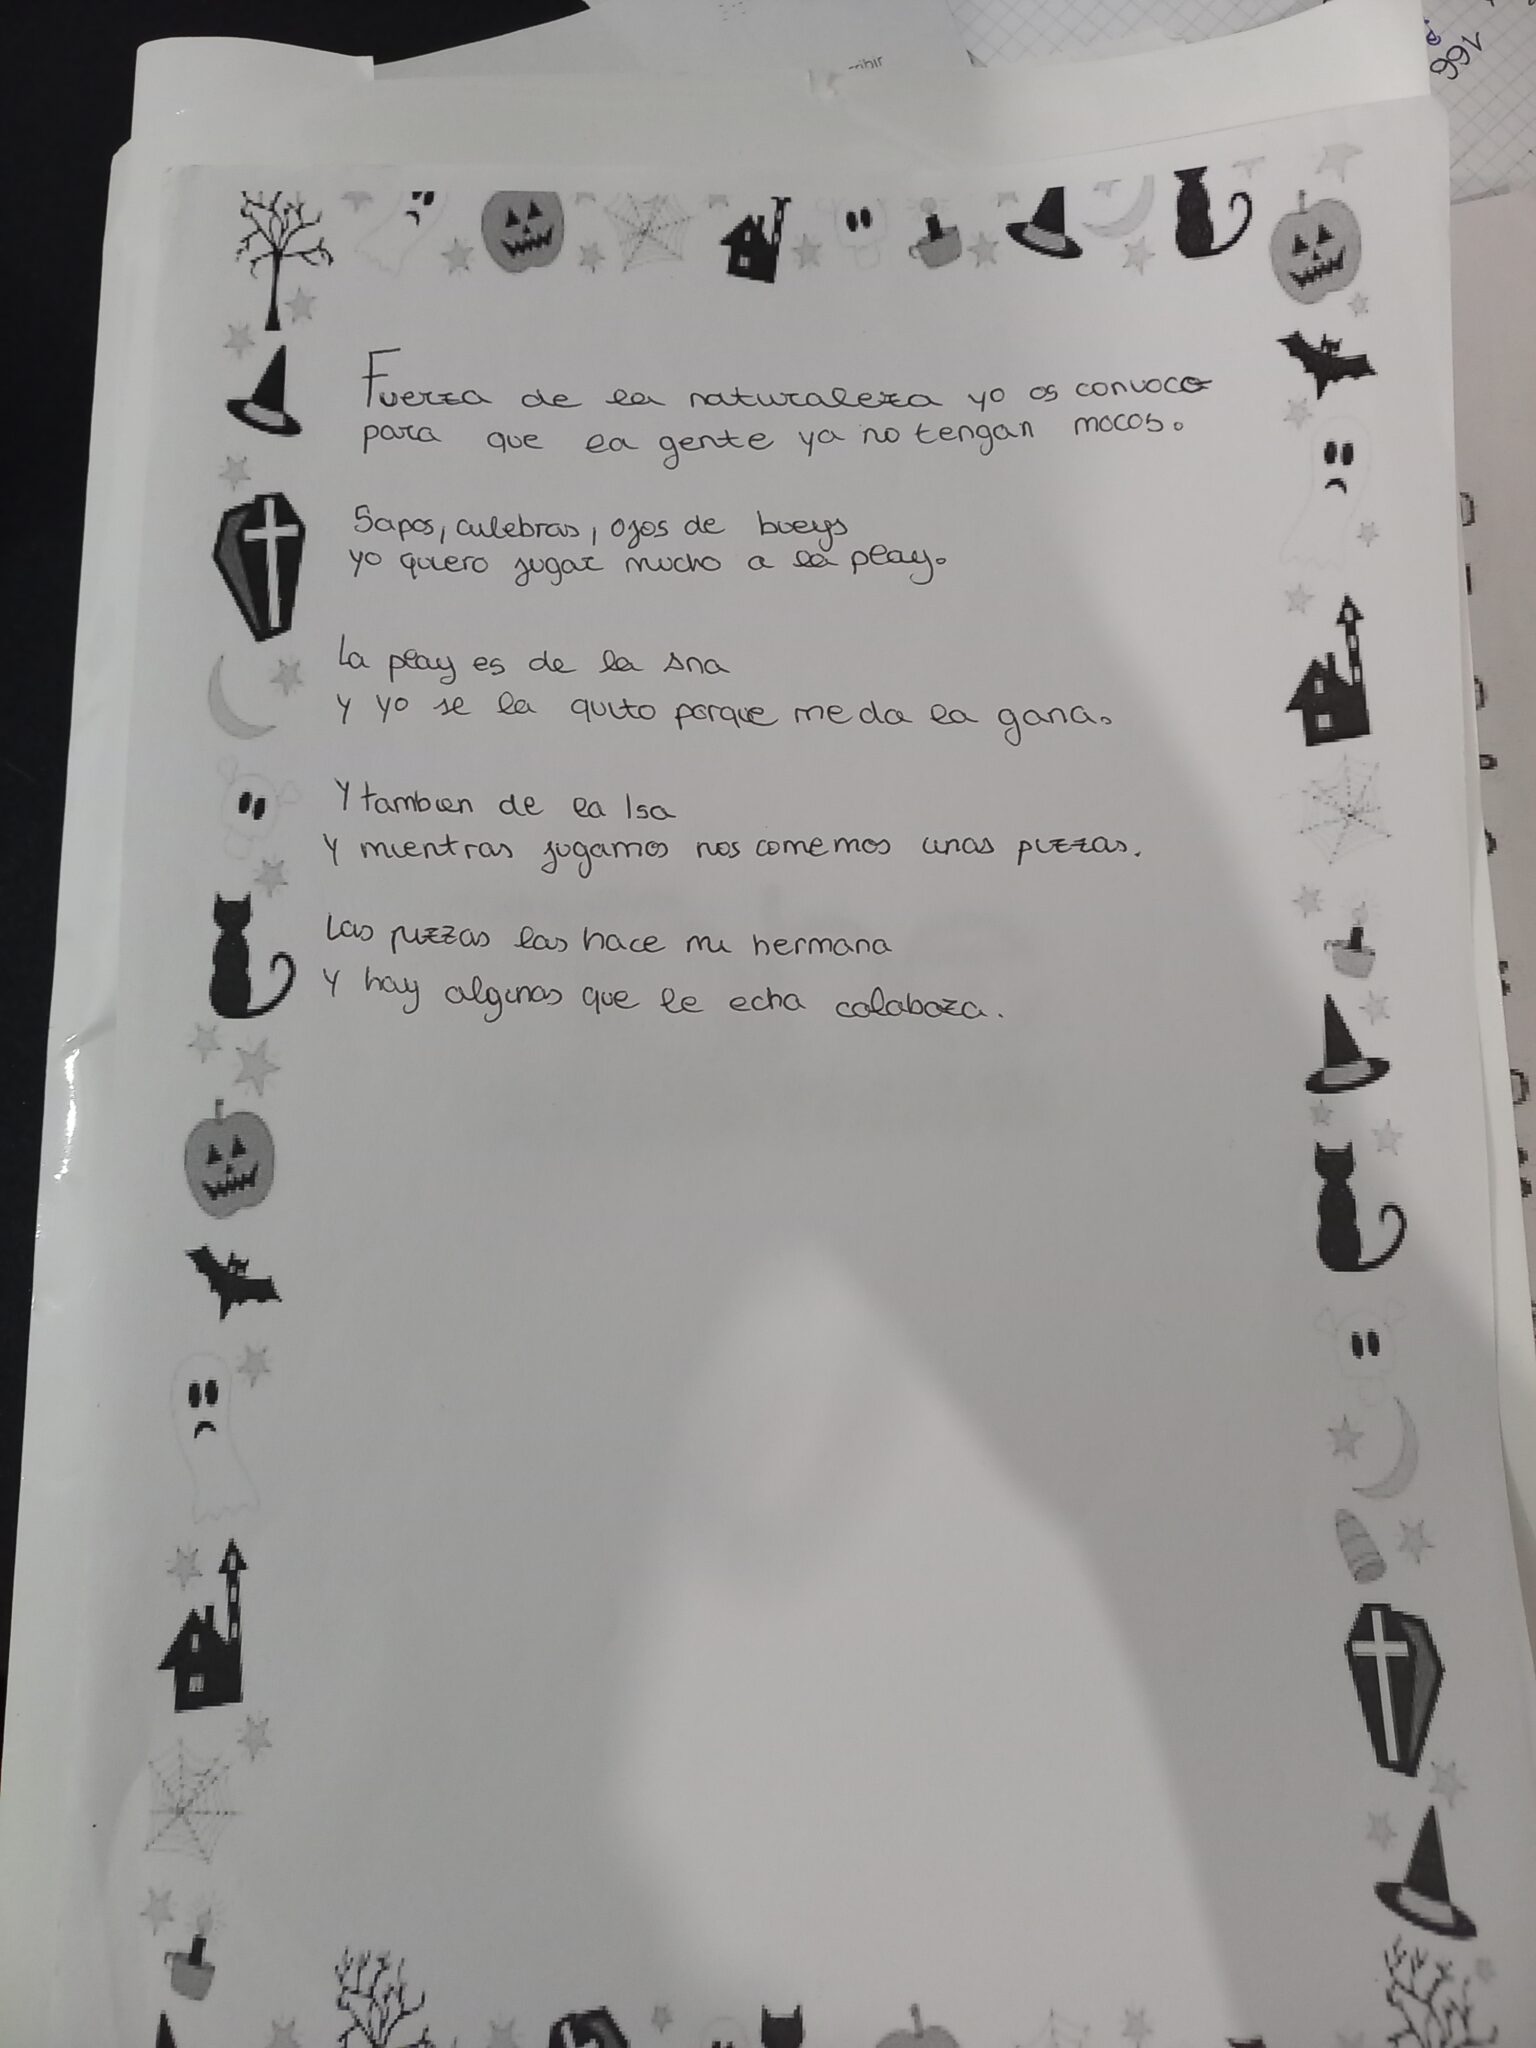 ribir
166
Fuerza de la naturaleza yo os convoco
para que la gente ya no tengan mocos.
Sapos, culebras, ojos de bueys
yo quiero jugar mucho a la play.
La play es de la Ana
y yo se la quito porque me da la gana.
Y tambien de la Isa
Y mientras jugamos nos comemos unas pizzas.
Las pizzas las hace mi hermana
Y hay algunas que le echa calabaza.